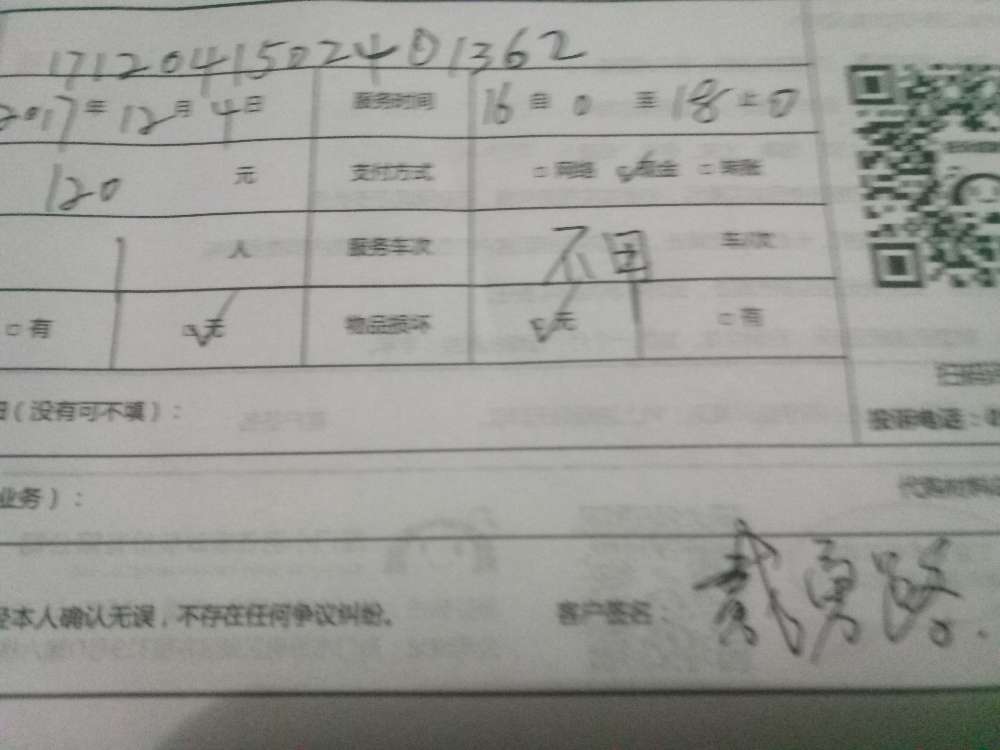 1712041502401362
2017年12月4日 服务时间 16自0至18止0
120元 支付方式 □网络 ☑现金 □转账
1人 服务车次 不用 车/次
□有 ☑无 物品损坏 ☑无 □有
(没有可不填):
投诉电话:
业务):
本人确认无误,不存在任何争议纠纷。 客户签名: